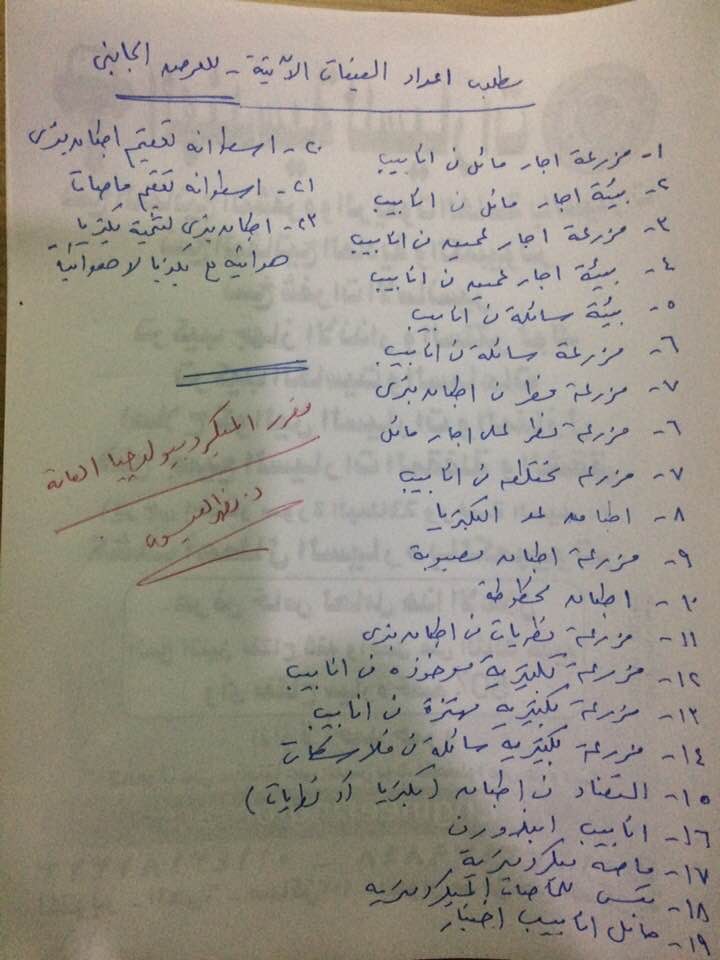 مطلوب اعداد العينات الآتية - للعرض الجانبى
١- مزرعة اجار مائل فى انابيب
٢- بيئة اجار مائل فى انابيب
٣- مزرعة اجار عميق فى انابيب
٤- بيئة اجار عميق فى انابيب
٥- بيئة سائلة فى انابيب
٦- مزرعة سائلة فى انابيب
٧- مزرعة فطر فى اطباق بترى
٦- مزرعة فطر على اجار مائل
٧- مزرعة مختلطه فى انابيب
٨- اطباق لعد البكتريا
٩- مزرعة اطباق مصبوبة
١٠- اطباق مخطوطة
١١- مزرعة فطريات فى اطباق بترى
١٢- مزرعة بكتيرية موخوزه فى انابيب
١٣- مزرعة بكتيرية مهتزة فى انابيب
١٤- مزرعة بكتيريه سائلة فى فلاسكات
١٥- التضاد فى اطباق (بكتريا او فطريات)
١٦- انابيب ابندورف
١٧- ماصه ميكروميترية
١٨- تبس للماصات الميكروميتريه
١٩- حامل انابيب اختبار
٢٠- اسطوانه تعقيم اطباق بترى
٢١- اسطوانه تعقيم ماصات
٢٣- اطباق بترى لتنمية بكتريا
هوائيه مع بكتريا لا هوائية
مقرر الميكروبيولوجيا العامة